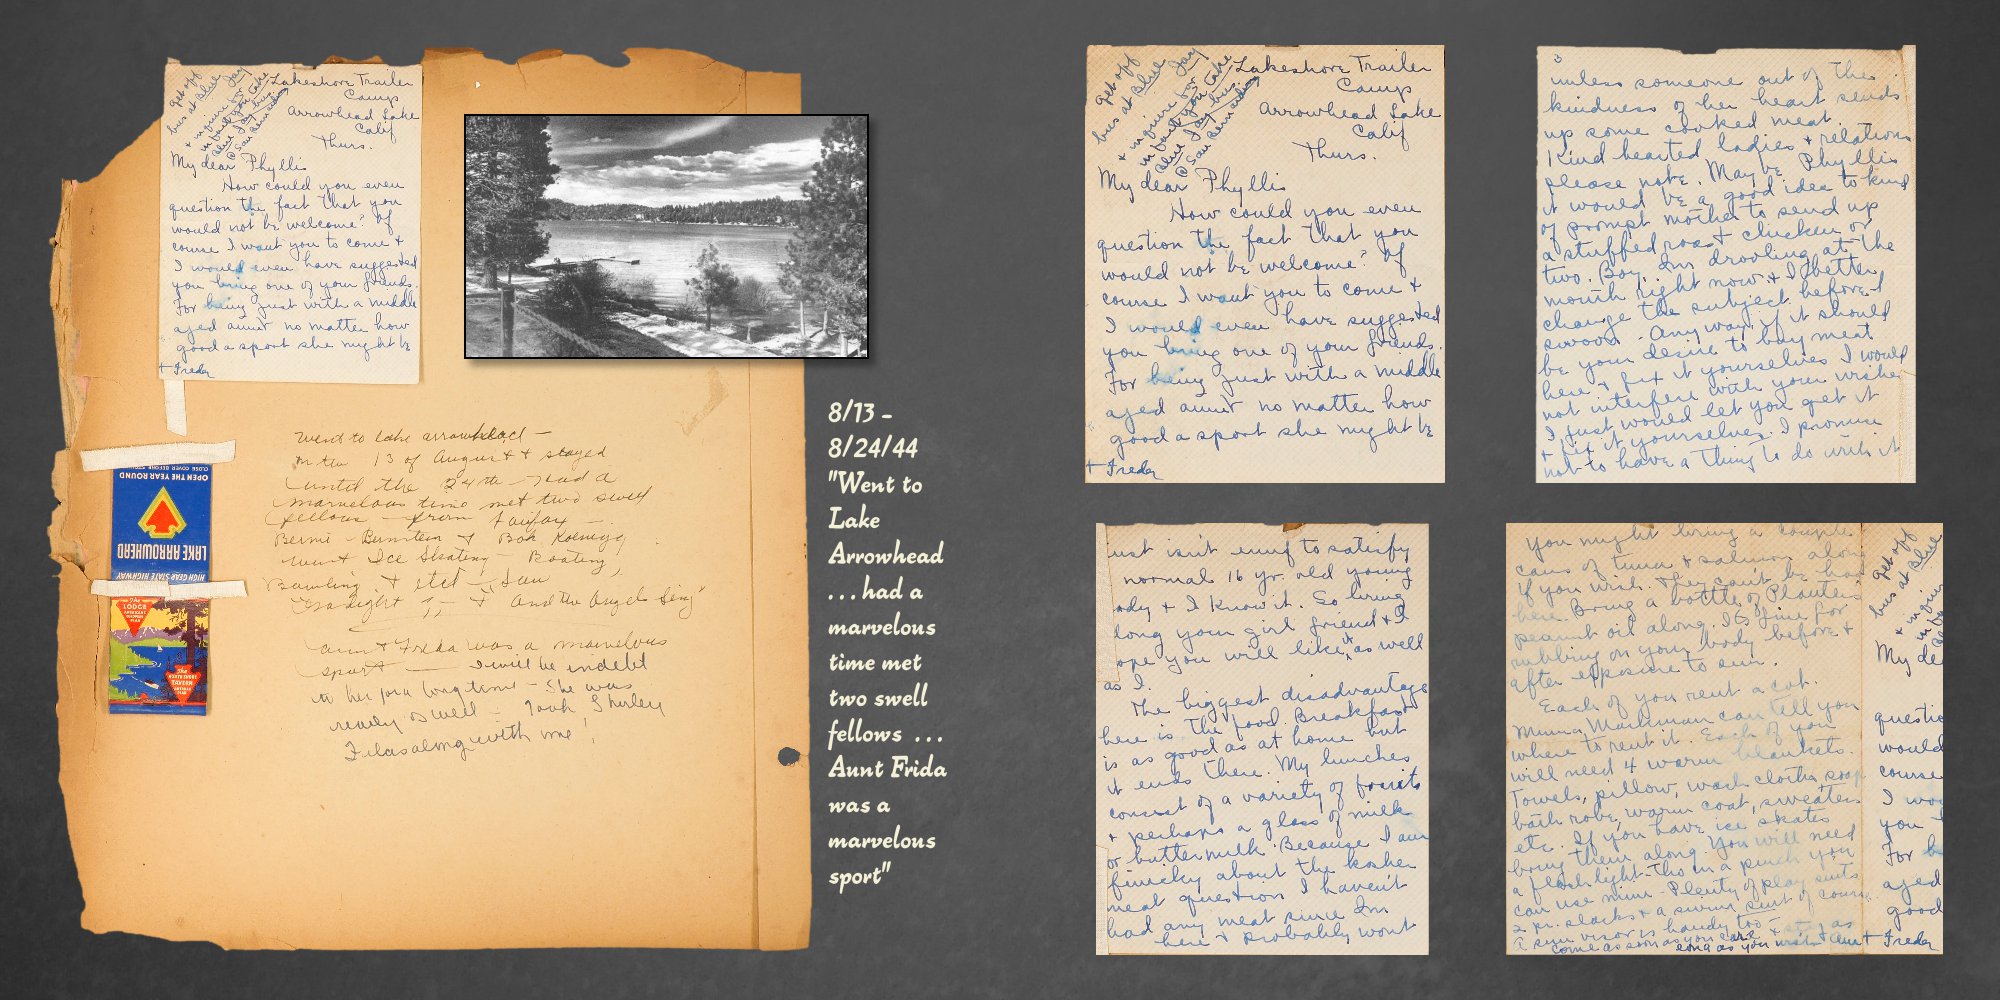 get off
bus at Blue Jay
+ inquire for
in fact you take
Blue Jay bus
@ San Bernardino
Lakeshore Trailer
Camp
Arrowhead Lake
Calif
Thurs.
My dear Phyllis
How could you even
question the fact that you
would not be welcome? Of
course I want you to come +
I would even have suggested
you bring one of your friends.
For being just with a middle
aged aunt no matter how
good a sport she might be
+ Freda
OPEN THE YEAR ROUND
LAKE ARROWHEAD
HIGH GEAR STATE HIGHWAY
LODGE
The
NORTH SHORE
TAVERN
Went to Lake Arrowhead —
on the 13 of August + stayed
until the 24th — had a
marvelous time met two swell
fellows — from Fairfax —
Bernie Bernstein + Bob Koenigg
went Ice Skating — Boating
Bowling + etc! — Saw
"Gaslight" — + "And the Angels Sing"
Aunt Frida was a marvelous
sport — I will be indebt
to her for a long time — She was
really swell — Took Shirley
along with me!
8/13 -
8/24/44
"Went to
Lake
Arrowhead
...had a
marvelous
time met
two swell
fellows ...
Aunt Frida
was a
marvelous
sport"
get off
bus at Blue Jay
+ inquire for
in fact you take
Blue Jay bus
@ San Bernardino
Lakeshore Trailer
Camp
Arrowhead Lake
Calif
Thurs.
My dear Phyllis
How could you even
question the fact that you
would not be welcome? Of
course I want you to come +
I would even have suggested
you bring one of your friends.
For being just with a middle
aged aunt no matter how
good a sport she might be
+ Freda
just isn't enuf to satisfy
normal 16 yr. old young
ady + I know it. So bring
long your girl friend + I
ope you will like it as well
as I.
The biggest disadvantage
here is the food. Breakfast
is as good as at home but
it ends there. My lunches
consist of a variety of fruits
+ perhaps a glass of milk
or buttermilk. Because I am
finicky about the kosher
meat question I haven't
had any meat since I'm
here + probably wont
3
unless someone out of the
kindness of her heart sends
up some cooked meat.
Kind hearted ladies + relations
please note. Maybe Phyllis
it would be a good idea to kind
of prompt mother to send up
a stuffed roast chicken or
two. Boy, Im drooling at the
mouth right now + I better
change the subject before I
swoon. Anyway, if it should
be your desire to buy meat
here + fix it yourselves I would
not interfere with your wishes
I just would let you get it
+ fix it yourselves. I promise
not to have a thing to do with it
You might bring a couple
cans of tuna + salmon along
if you wish. They can't be had
here. Bring a bottle of Planters
peanut oil along. Its fine for
rubbing on your body before +
after exposure to sun.
Each of you rent a cot.
Muma, Markman can tell you
where to rent it. Each of you
will need 4 warm blankets.
Towels, pillow, wash cloths soap
bath robe, warm coat, sweaters
etc. If you have ice skates
bring them along. You will need
a flash light - tho in a pinch you
can use mine - Plenty of play suits
2 pr. slacks + a swim suit of course
A sun visor is handy too + stay as
Come as soon as you care long as you wish Aunt Freda
get off
bus at Blue
+ inquire
in fa
My de
questio
would
course
I wou
you
For b
aged
good
+ Freda